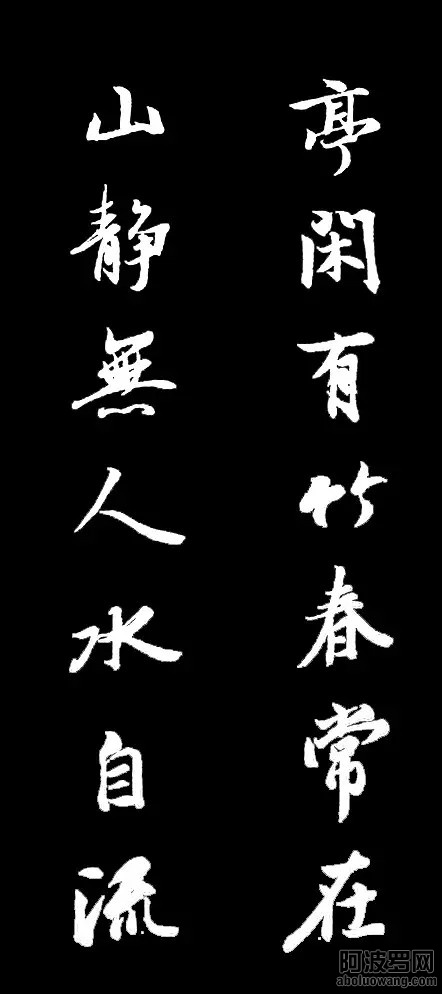 亭閑有竹春常在
山静無人水自流
阿波罗网
aboluowang.com